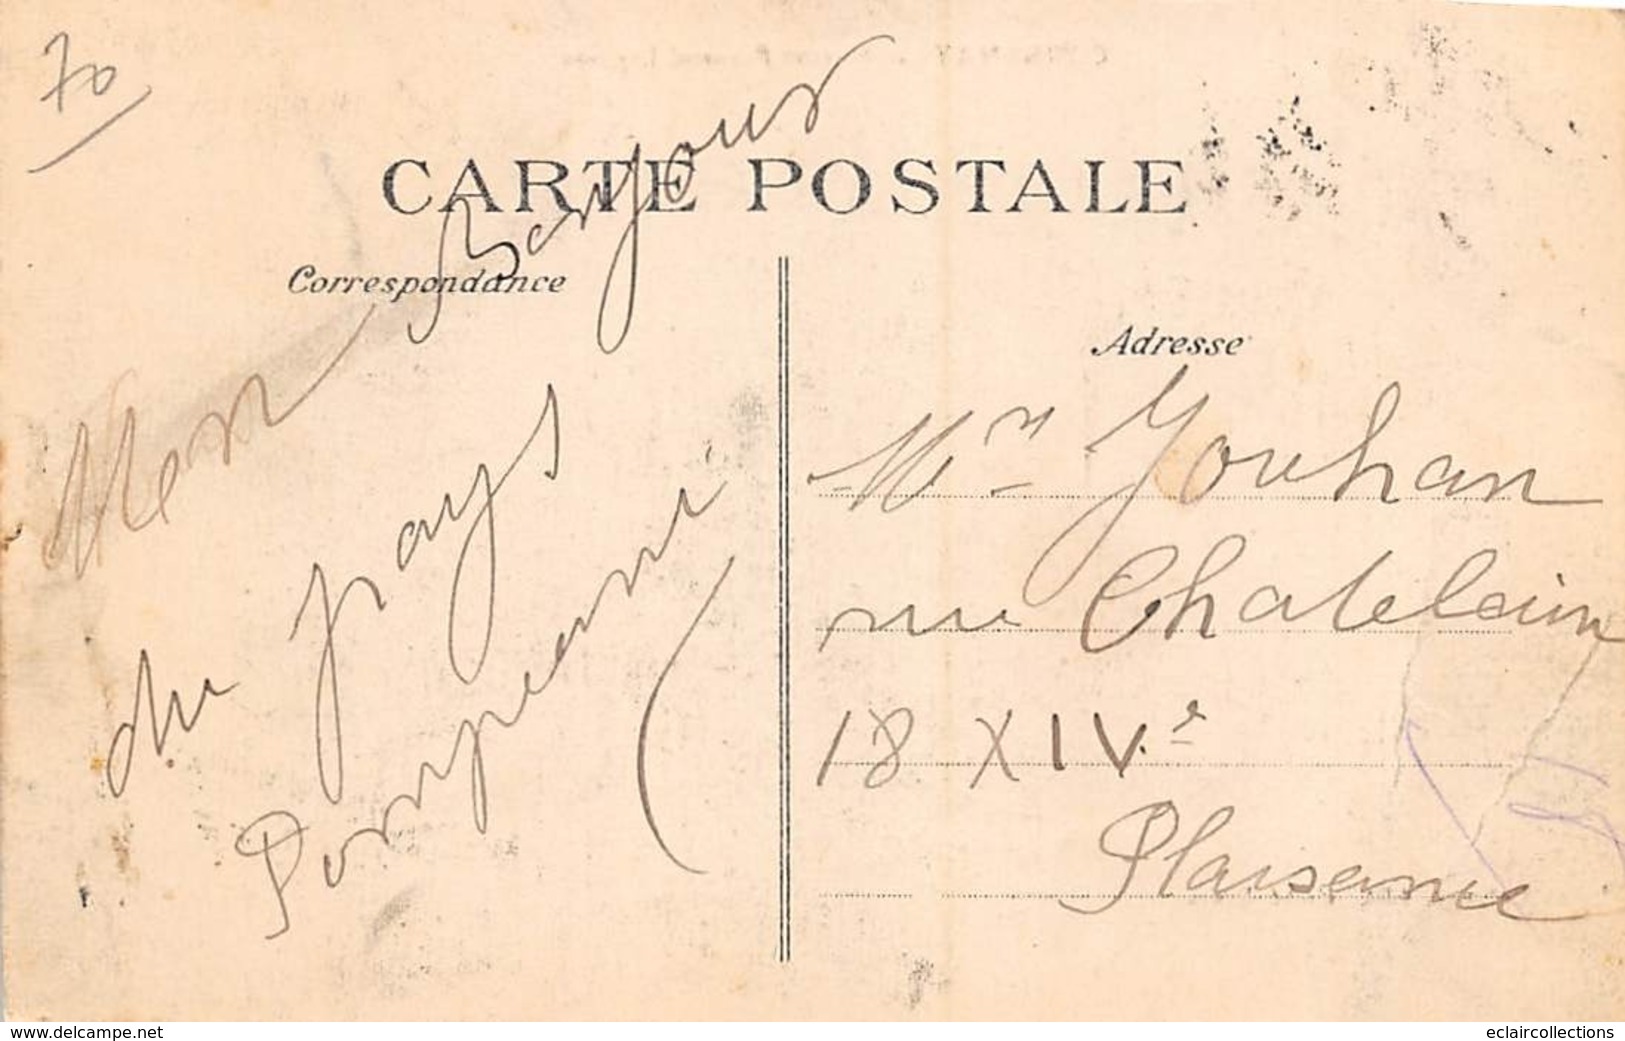 70
CARTE POSTALE
Correspondance
Mon Bonjour
du pays
Pompeani
Adresse
Mr Jouhan
rue Chatelain
18 XIVe
Plaisance
www.delcampe.net
eclaircollections